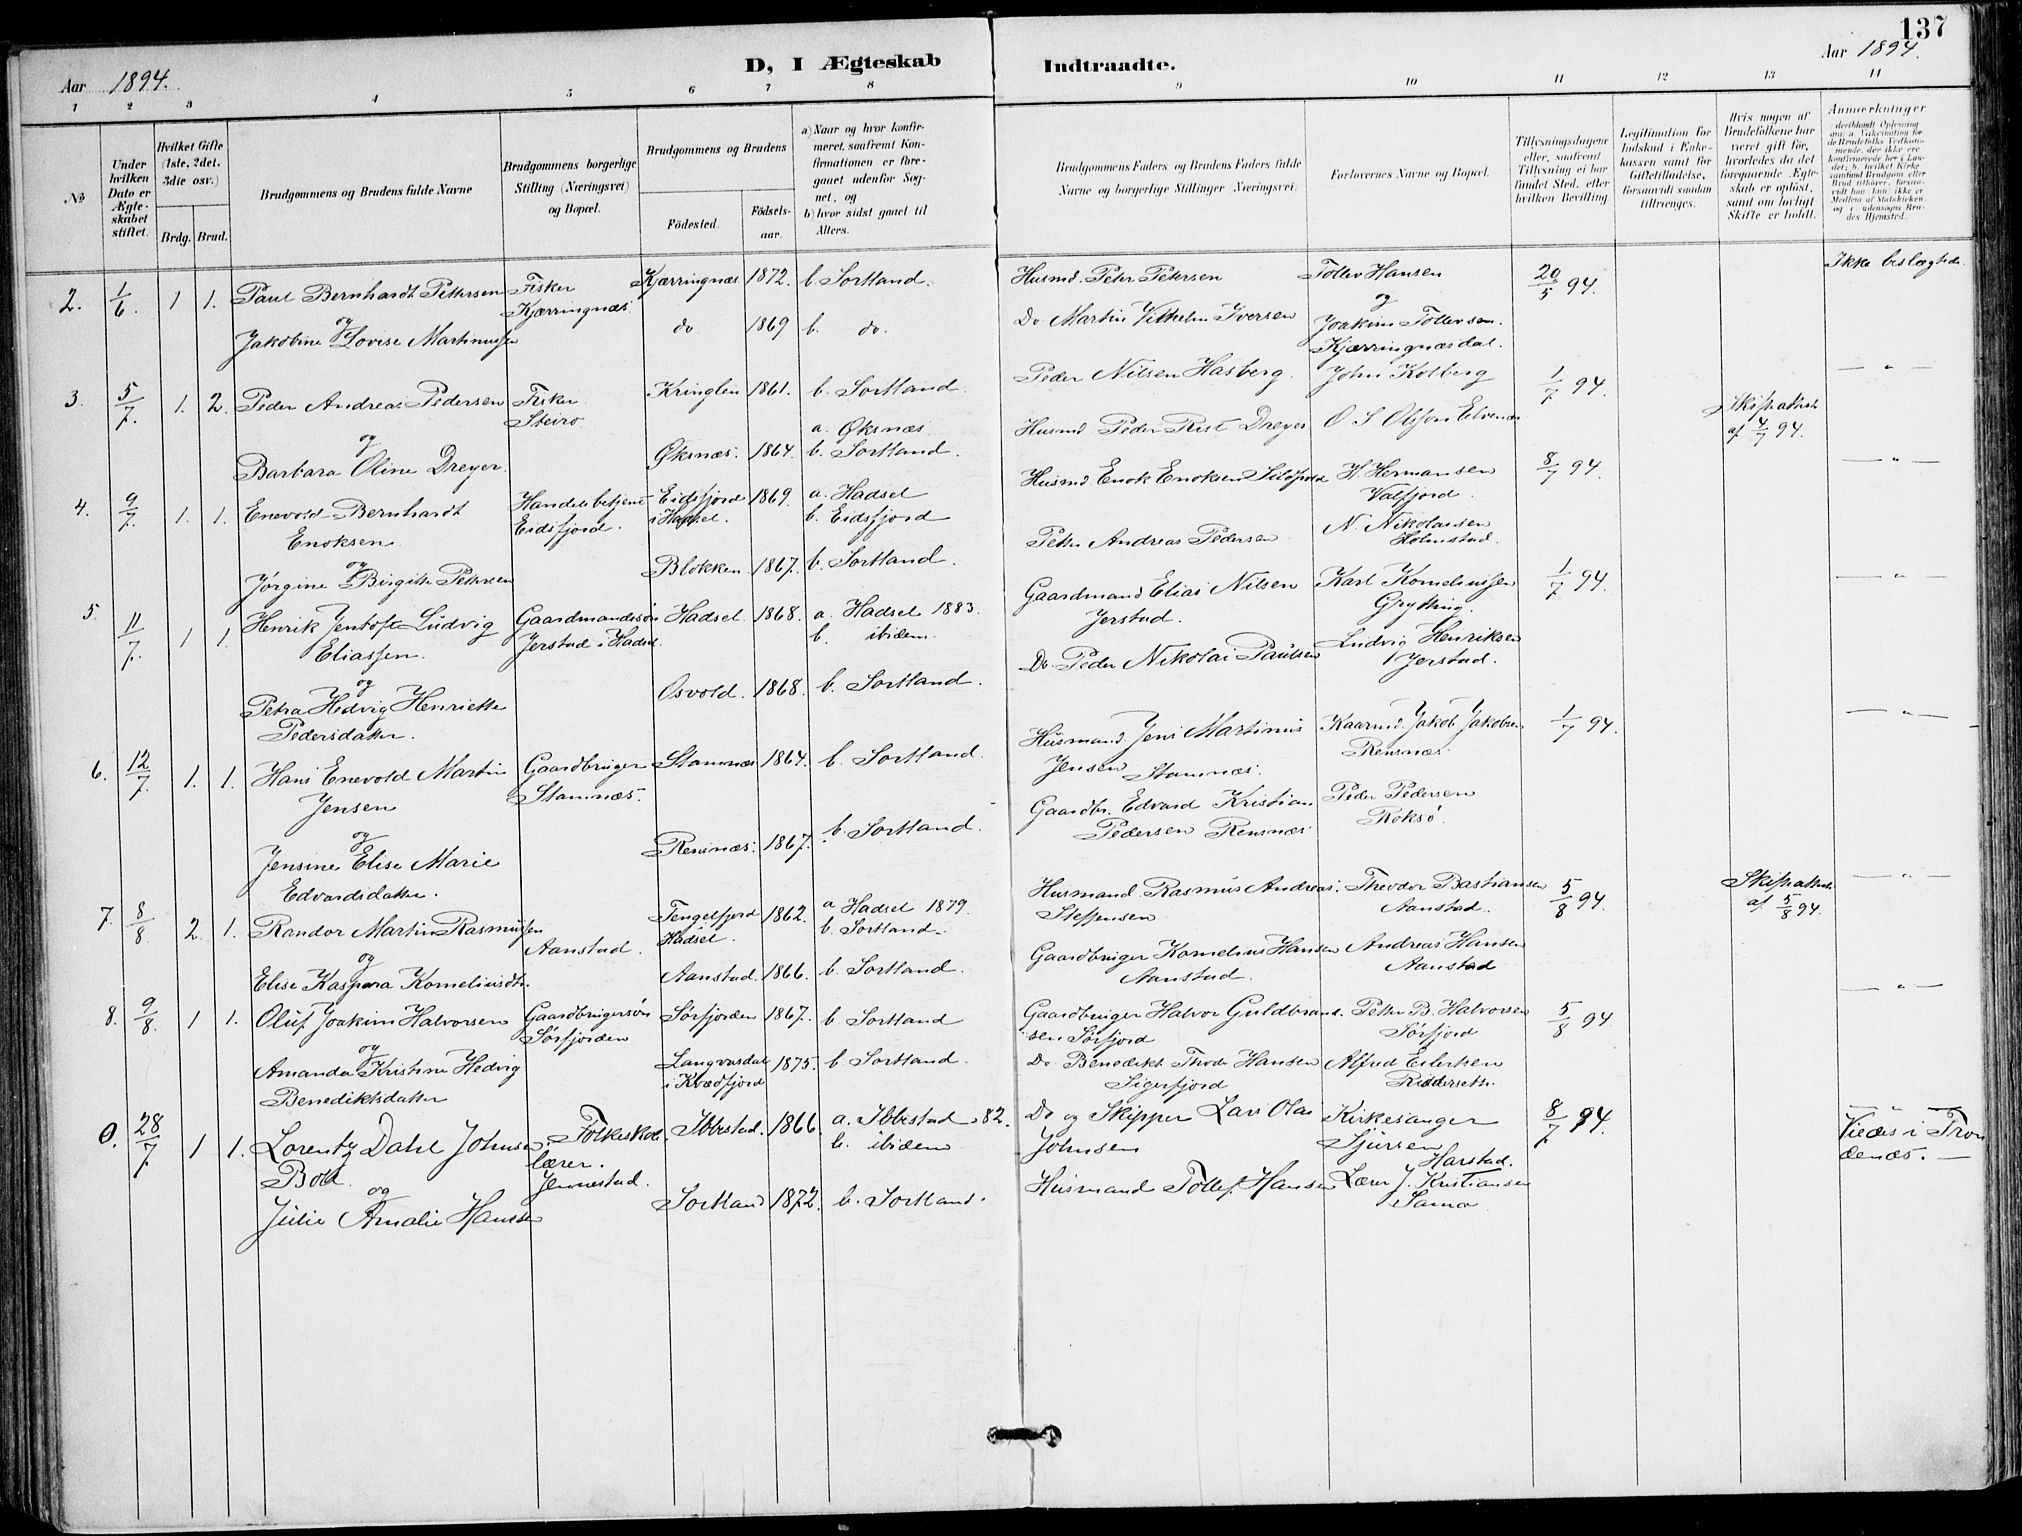 137
Aar 1894.
D, I Ægteskab Indtraadte.
Aar 1894.
1 2 3 4 5 6 7 8 9 10 11 12 13 14
No
Under hvilken Dato er Ægteskabet stiftet.
Hvilket Gifte (1ste, 2det, 3die osv.)
Brdg. Brud.
Brudgommens og Brudens fulde Navne
Brudgommens borgerlige Stilling (Næringsvei) og Bopæl.
Brudgommens og Brudens
Födested.
Födsels-aar.
a) Naar og hvor konfir-
meret, saafremt Kon-
firmationen er fore-
gaaet udenfor Sog-
net, og
b) hvor sidst gaaet til
Alters.
Brudgommens Faders og Brudens Faders fulde
Navne og borgerlige Stillinger Næringsvei.
Forlovernes Navne og Bopæl.
Tillysningsdagene
eller, saafremt
Tillysning ei har
fundet Sted, efter
hvilken Bevilling
Legitimation for
Indskud i Enke-
kassen samt for
Giftetilladelse,
forsaavidt saadan
tiltrænges.
Hvis nogen af
Brudefolkene har
været gift før,
hvorledes da det
foregaaende Ægte-
skab er opløst,
samt om lovligt
Skifte er holdt.
Anmerkninger
2. 1/6. 1 1. Paul Bernhardt Pettersen Fisker Kjærringnæs 1872. b. Sortland. Husmd. Peter Petersen Tollev Hansen 20/5 94. Ikke beslægtede
og Kjærringnæs. og
Jakobine Lovise Martinussen do. 1869 b. do. Do Martin Vilhelm Iversen Joakim Tollevsen.
Kjærringnæsdal.
3. 5/7. 1. 2. Peder Andreas Pedersen Fisker Kringlen 1861. b. Sortland. Peder Nilsen Hasberg. John Kolberg 1/7 94. Skifteattest — " —
Steiro af 4/7 94.
og a. Øksnæs
Barbara Oline Dreyer. Øksnæs. 1864. b. Sortland. Husmd Peder Rist Dreyer O S Olsson Elvenæs
4. 9/7. 1. 1. Enevold Bernhardt Handelsbetjent Eidsfjord 1869. a. Hadsel Husmd. Enok Enoksen Sildpold H. Hermansen 8/7 94. — " —
Enoksen. Eidsfjord. i Hadsel. b. Eidsfjord Valfjord.
og
Jørgine Birgitte Petersen Blokken 1867. b. Sortland. Peter Andreas Pedersen N. Nikolaisen
Holmstad.
5 11/7. 1 1. Henrik Jentoft Ludvig Gaardmandssøn Hadsel. 1868. a. Hadsel 1883. Gaardmand Elias Nilsen Karl Kornelinssen 1/7 94. — " —
Eliassen. Jerstad i Hadsel. b. ibidem. Jerstad. Grytting.
og
Petra Hedvig Henriette Osvold. 1868. b. Sortland. Do. Peder Nikolai Paulsen Ludvig Henriksen
Pedersdatter. Jerstad.
6. 12/7. 1. 1. Hans Enevold Martin Gaardbruger Stamnæs 1864. b. Sortland. Husmand Jens Martinus Kaarmd. Jakob Jakobsen 1/7 94. — " —
Jensen Stamnæs. Jensen Stamnæs. Rensnæs.
og
Jensine Elise Marie Rensnæs. 1867. b. Sortland. Gaardbr. Edvard Kristian Peder Pedersen
Edvardsdatter. Pedersen Rensnæs Roksø.
7. 8/8 2. 1. Randor Martin Rasmussen Aanstad. Tengelfjord Hadsel. 1862. a Hadsel 1879. Husmand Rasmus Andreas Theodor Bastiansen 5/8 94. Skifteattest — " —
b. Sortland. Steffensen Aanstad. af 5/8 94.
og
Elise Kaspara Korneliusdtr. Aanstad. 1866. b. Sortland. Gaardbruger Kornelius Hansen Andreas Hansen
Aanstad. Aanstad
8. 9/8. 1 1. Oluf Joakim Halvorsen Gaardbrugersøn Sørfjorden 1867. b Sortland Gaardbruger Halvor Guldbrand- Petter B. Halvorsen 5/8 94. — " —
og Sørfjorden sen Sørfjord Sørfjord
Amanda Kristine Hedvig Langvasdal 1875. b Sortland. Do Benedikt Thode Hansen Alfred Eilertsen
Benediktsdatter i Kvædfjord Sigerfjord
28/7 1 1. Lorentz Dahl Johnsen Folkeskole- Ibbestad. 1866. a. Ibbestad 82. Do og Skipper Lars Olai Kirkesanger 8/7 94. Viedes i Tron
Boll. lærer. b. ibidem Johnsen Sjursen denæs. —
og Harstad.
Julie Amalie Hansen Sortland 1872. b. Sortland. Husmand Tollef Hansen Lærer J. Kristiansen
Sama